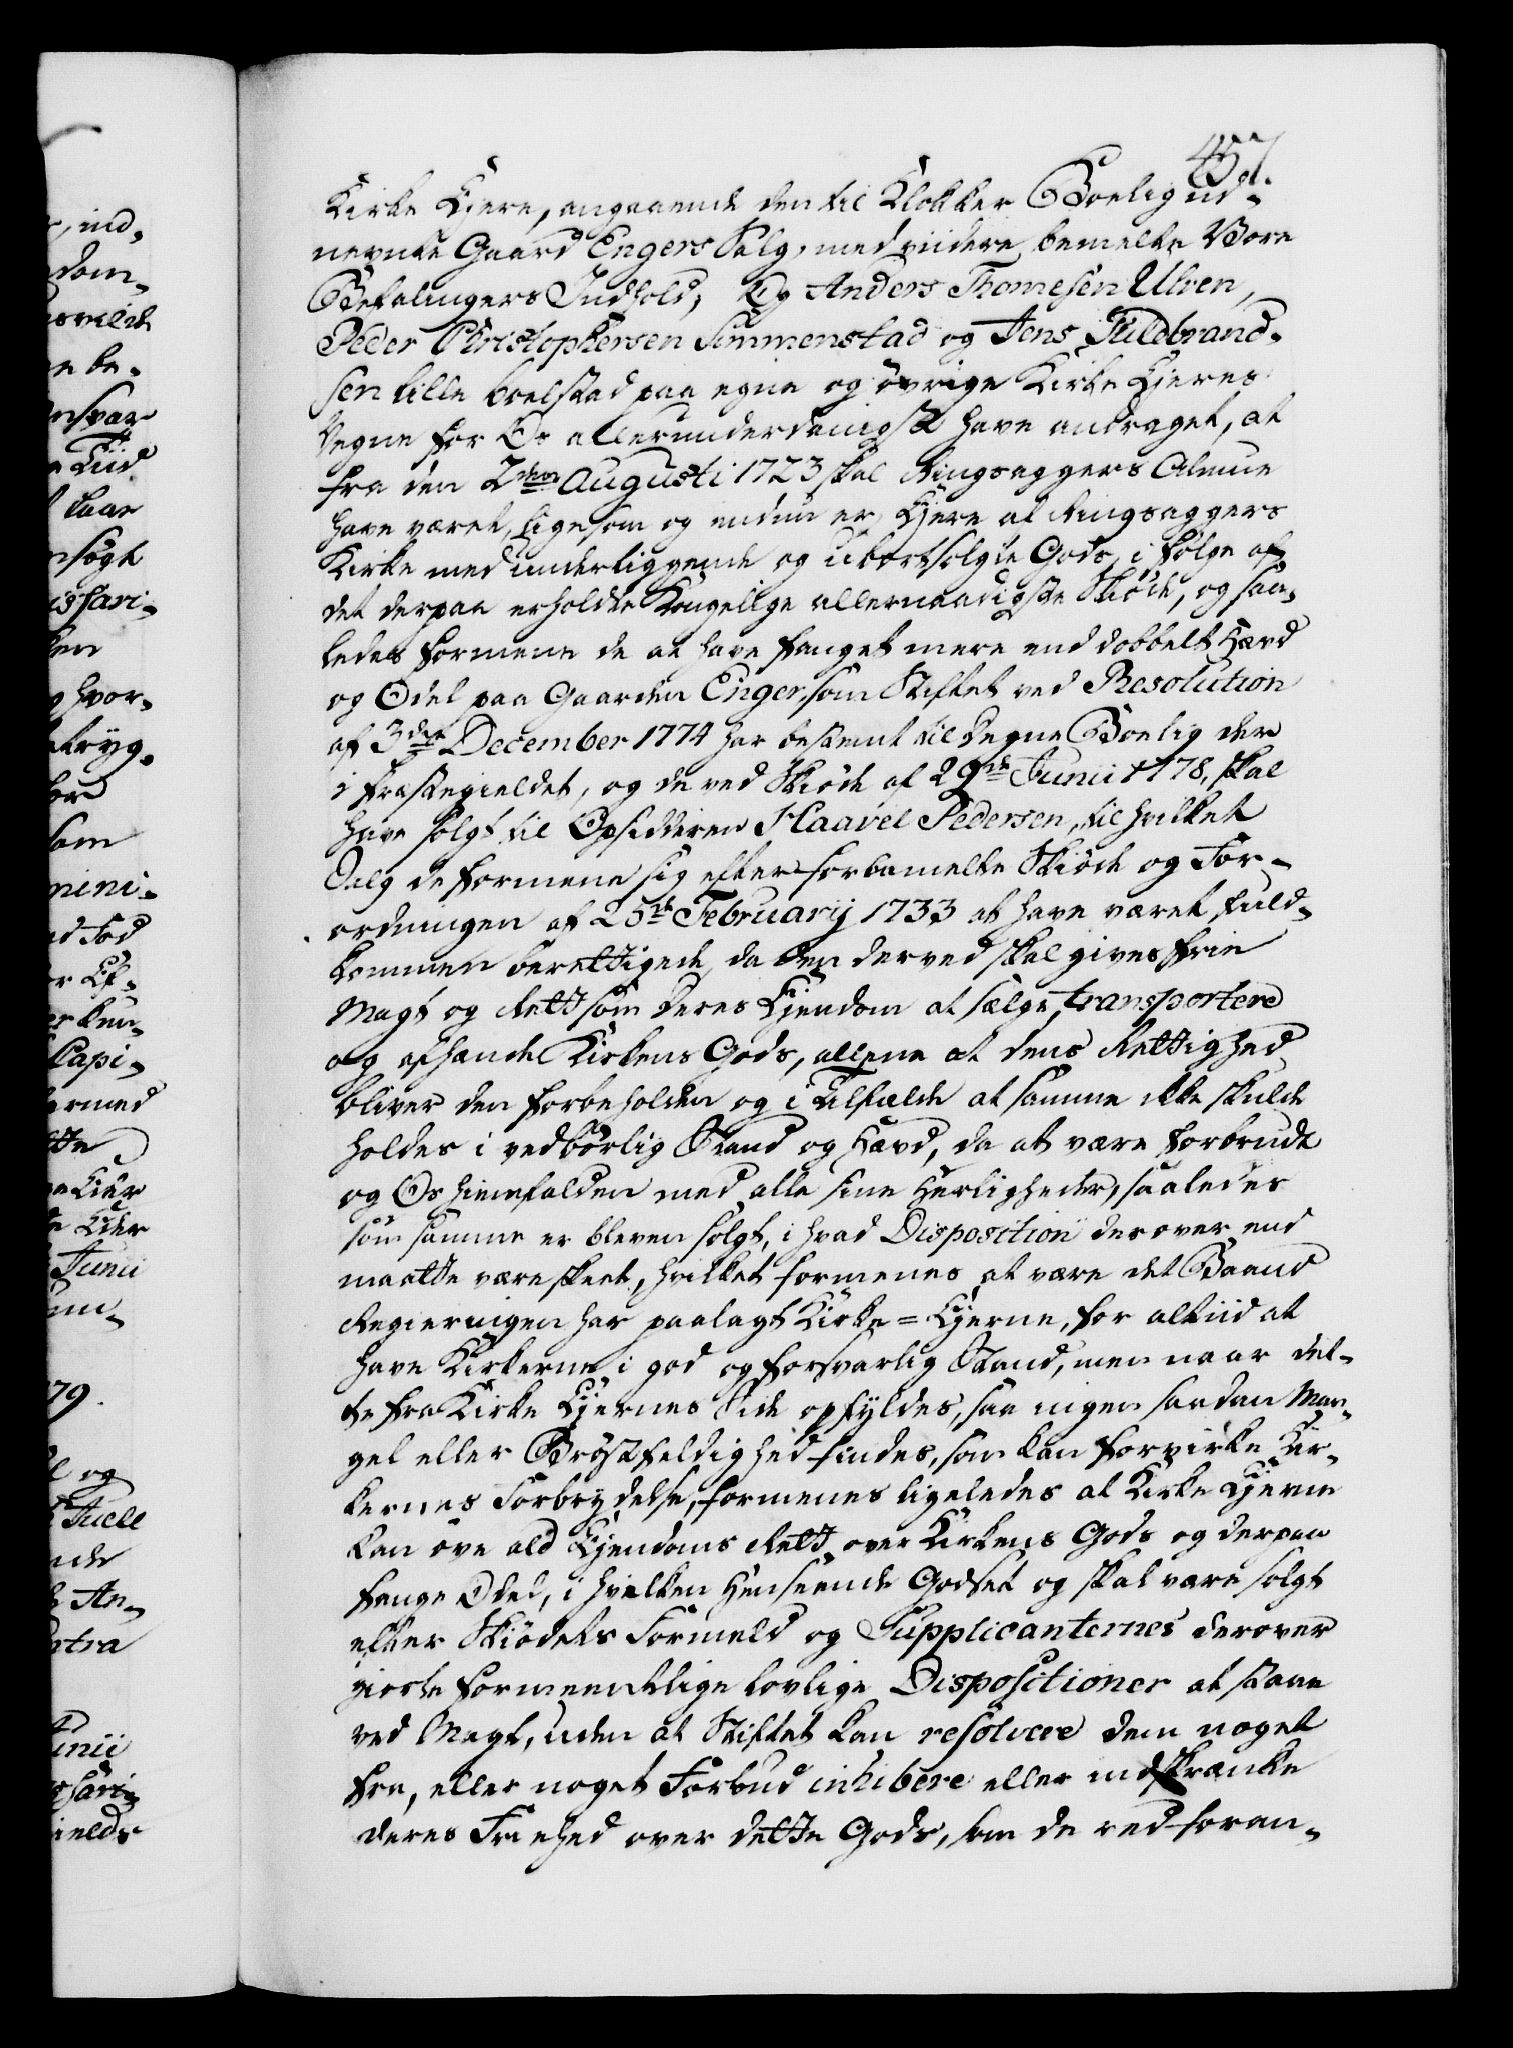 457.
Kirke Ejere, angaaende den til Klokker Boelig ud-
nevnte Gaard Engers Salg, med viidere bemelte Vore
Befalingers Indhold; Og Anders Thomesen Ulven,
Peder Christophersen Simmenstad og Jens Hildbrand-
sen lille boelstad paa egne og øvrige Kirke Ejeres
Vegne for Os allerunderdanigst have andraget, at
fra den 2den Augusti 1723 skal Ringsaggers Almue
have været, ligesom og endnu er, Ejere at Ringsaggers
Kirke med underliggende og ubortsolgte Gods, i følge af
det derpaa erholdte Kongelige allernaadigste Skiøde, og saa-
ledes formene de at have fanget mere end dobbelt Hævd
og Odel paa Gaarden Enger, som Stiftet ved Resolution
af 3die December 1774 har bestemt til Degne Boelig der
i Præstegieldet, og de ved Skiøde af 29de Junii 1778, skal
have solgt til Opsidderen Haavel Pedersen, til hvilket
Salg de formene sig efter forbemelte Skiøde og For-
ordningen af 25de Februarij 1733 at have været fuld-
kommen berettigede, da den derved skal gives frie
Magt og Rett som deres Ejendom at sælge, transportere
og afhænde Kirkens Gods, allene at dens Rettighed
bliver den forbeholden og i Tilfælde at samme ikke skulde
holdes i vedbørlig Stand og Hævd, da at være forbrudt
og Os hiemfalden med alle sine Herligheder, saaledes
som samme er bleven solgt, i hvad Disposition derover end
maatte være skeet, hvilket formenes at være det Baand
Regieringen har paalagt Kirke-Ejerne, for altiid at
have Kirkerne i god og forsvarlig Stand, men naar det-
te fra Kirke Ejernes Side opfyldes, saa ingen saadan Man-
gel eller Brøstfeldighed findes, som kan forvirke Kir-
kernes Forbrydelse, formenes ligeledes at Kirke Ejerne
kan øve ald Ejendoms Rett over Kirkens Gods og derpaa
fange Odel, i hvilken Henseende Godset og skal være solgt
efter Skiødets Formeld og Supplicanternes derover
giorte formeentlige lovlige Dispositioner at staae
ved Magt, uden at Stiftet kan resolvere dem noget
fra, eller noget Forbud inhibere eller indskrænke
deres Friehed over dette Gods, som de ved foran-